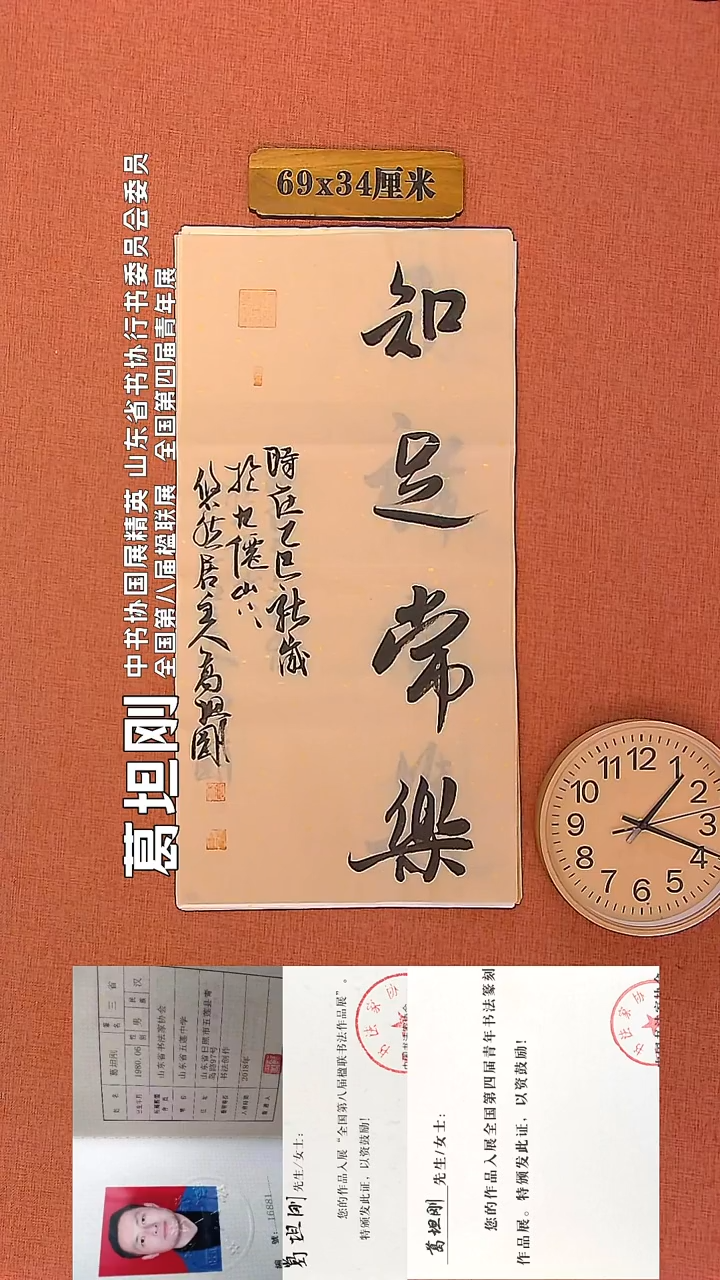 69x34厘米
知足常樂
時在乙巳秋歲
於九僊山下
悠然居主人葛坦剛
葛坦刚
中书协国展精英 山东省书协行书委员会委员
全国第八届楹联展 全国第四届青年展
12
1
2
3
4
5
6
7
8
9
10
11
葛坦刚
三省
1980.06
男
汉
山东省书法家协会
山东省五莲中学
书法创作
2018年
號：16881
葛坦刚 先生/女士：
您的作品入展“全国第八届楹联书法作品展”。
特颁发此证，以资鼓励！
葛坦刚 先生/女士：
您的作品入展全国第四届青年书法篆刻
作品展。特颁发此证，以资鼓励！